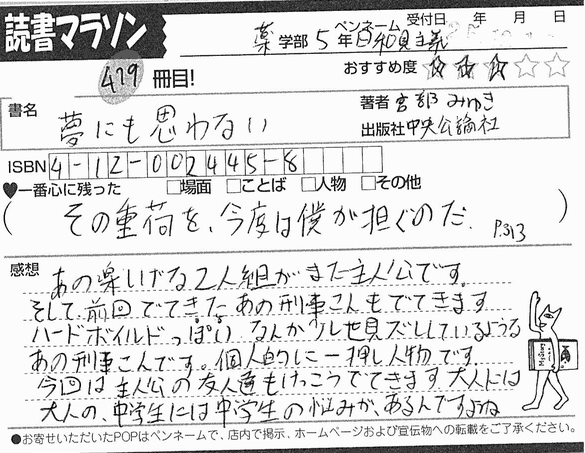 読書マラソン
薬学部 5年 ペンネーム 日和見主義 受付日 年 月 日
479冊目! おすすめ度 ★★★☆☆
書名 夢にも思わない 著者 宮部みゆき
出版社 中央公論社
ISBN 4-12-002445-8
♥一番心に残った □場面 □ことば □人物 □その他
(その重荷を、今度は僕が担ぐのだ。 P.313)
感想
あの楽しげな2人組がまた主人公です。
そして、前回でてきた あの刑事さんもでてきます
ハードボイルドっぽい、なんか
あの刑事さんです。個人的に一押し人物です。
今回は主人公の友人達もけっこうでてきます 大人には
大人の、中学生には中学生の悩みが、あるんですよね
Mystery
●お寄せいただいたPOPはペンネームで、店内で掲示、ホームページおよび宣伝物への転載をご了承ください。